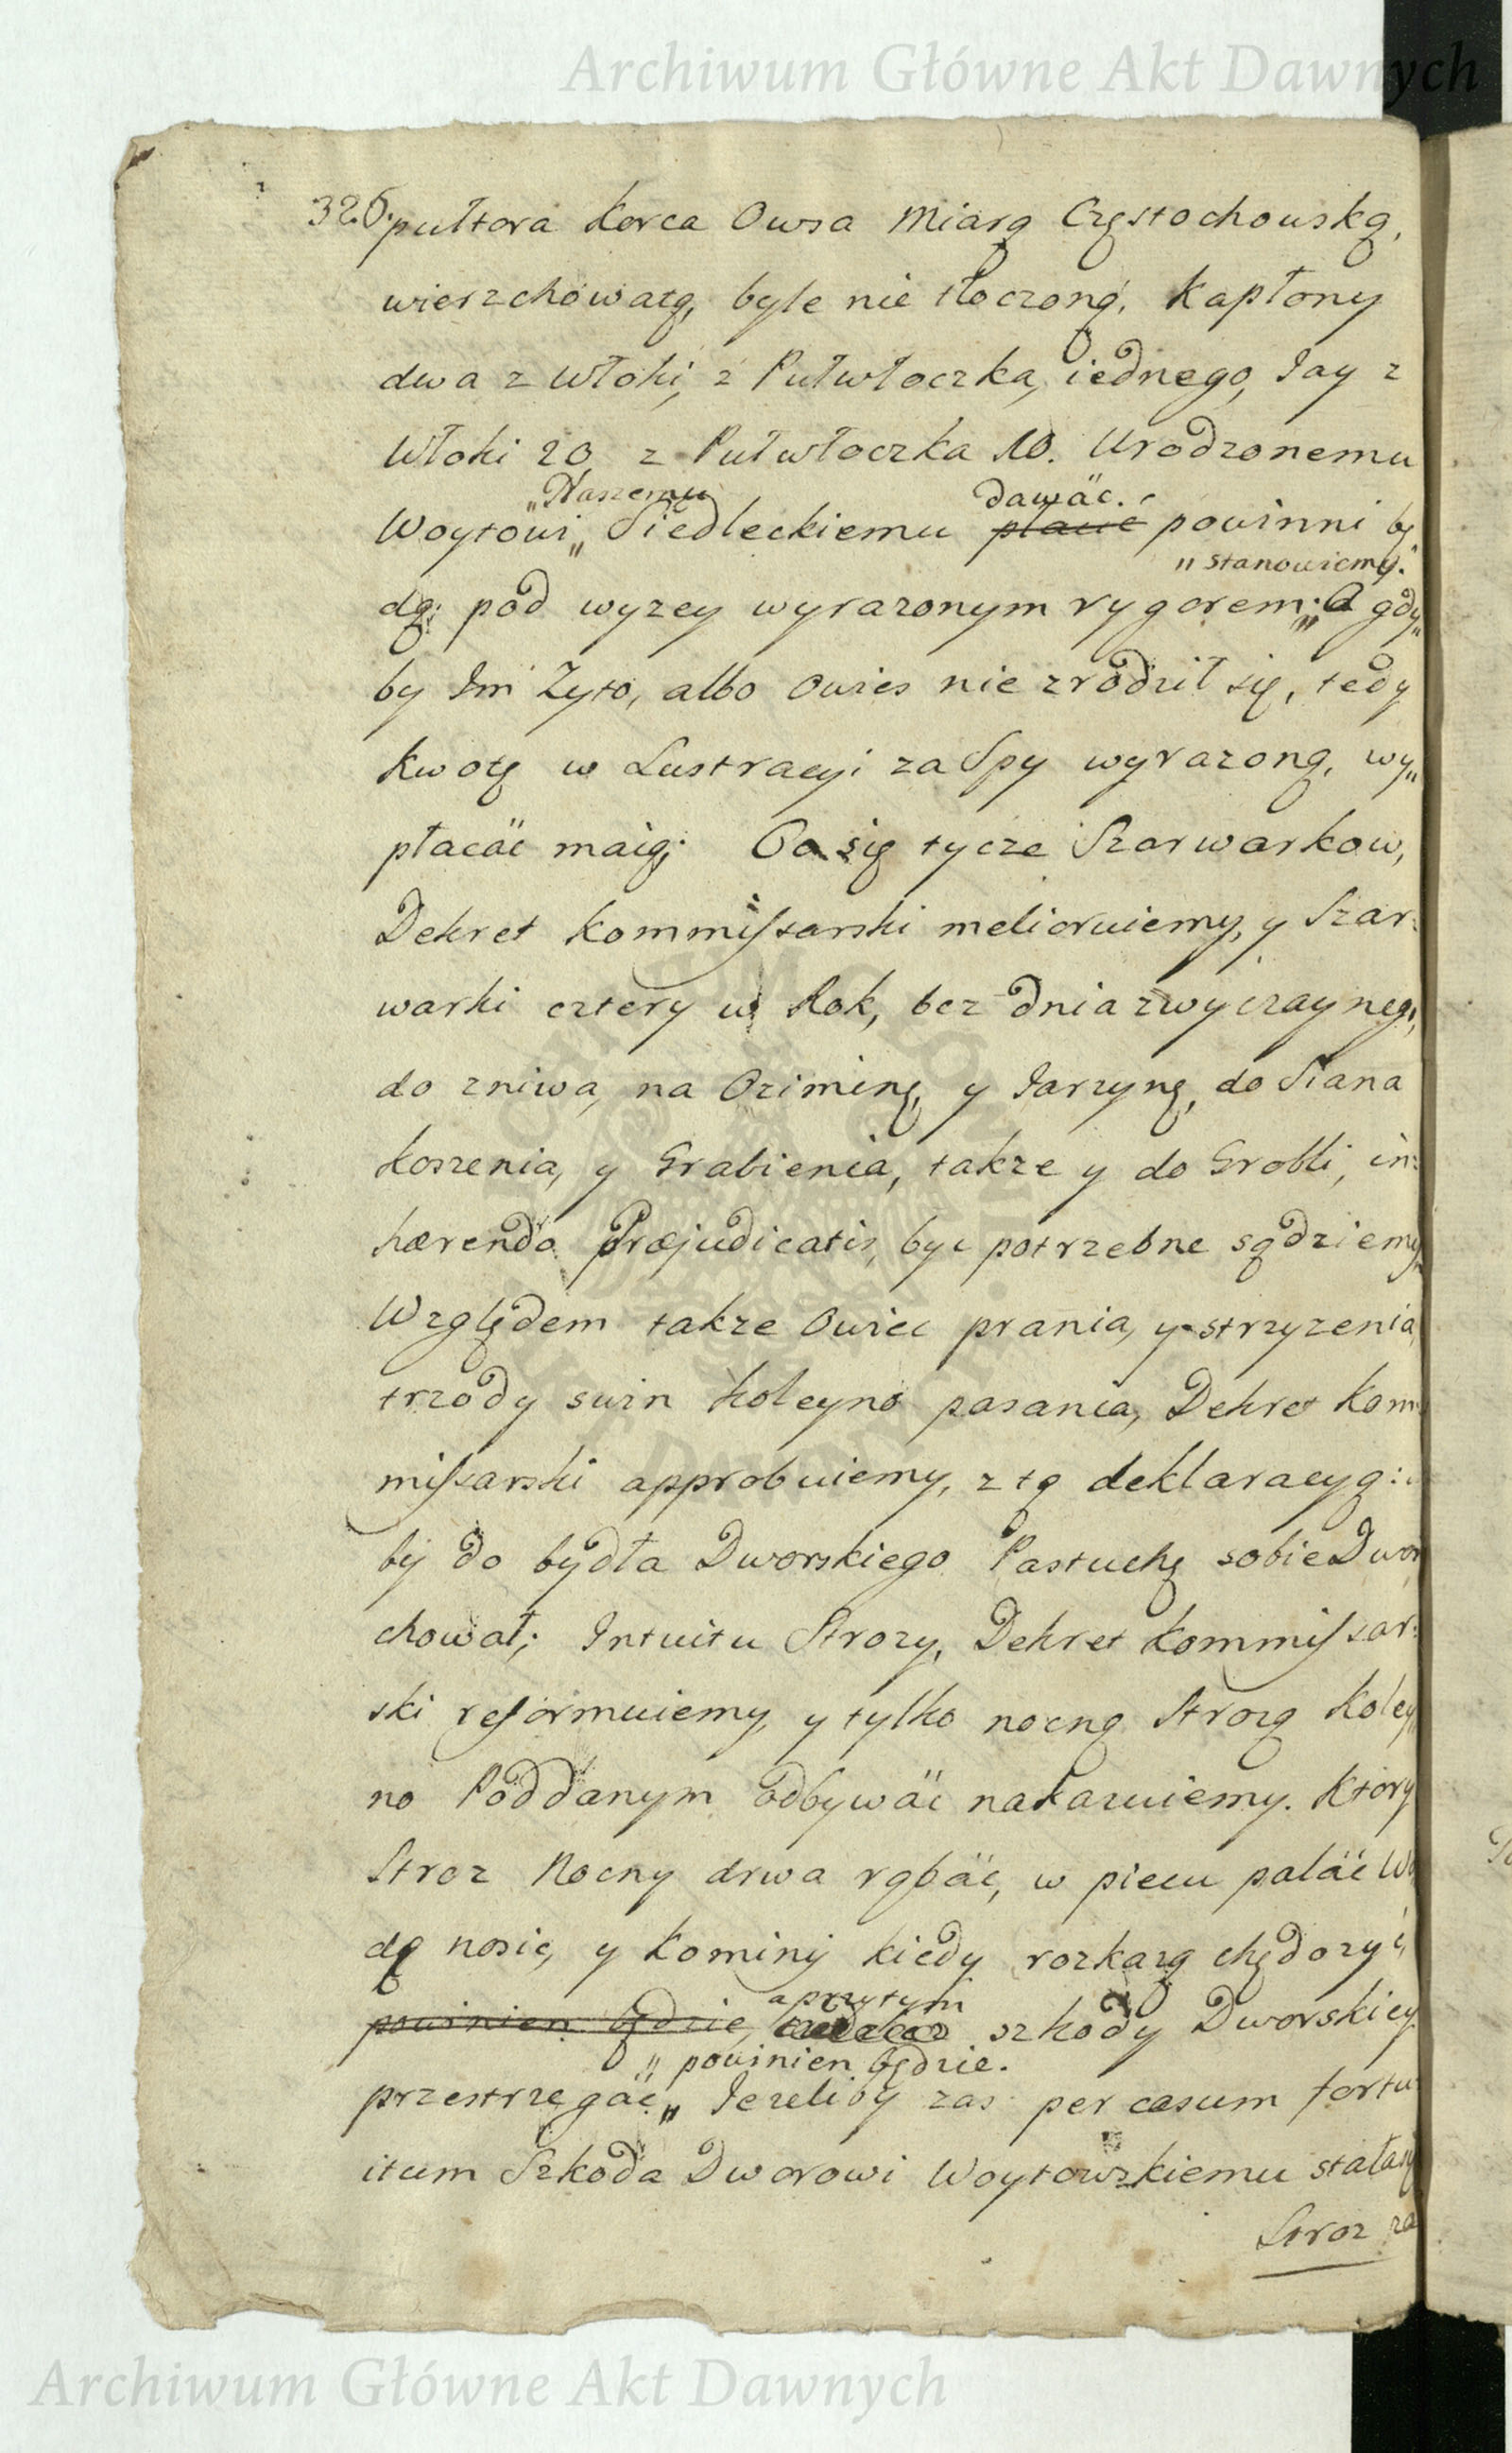 Archiwum Główne Akt Dawnych
326. pułtora Korca Owsa Miarą Częstochouską,
wierzchowatą, byle nie tłoczoną, Kapłony
dwa z Włoki, z Pułwłoczka, iednego, Jay z
Włoki 20, z Pułwłoczka 10. Urodzonemu
„Naszemu dawäć.
Woytowi„ Siedleckiemu płacić powinni bę
„stanowiemy.
dą; pod wyzey wyrazonym rygorem;„ A gdy„
by Im Zyto, albo Owies nie zrodził się, tedy
kwotę w Lustracyi za Spy wyrazoną, wy„
płacäć maią; Co się tycze Szarwarkow,
Dekret Kommiſsarski melioruiemy, y Szar:
warki cztery w Rok, bez dnia zwyczaynego,
do zniwa, na Oziminę, y Jarzynę, do Siana
koszenia, y Grabienia, takze y do Grobli, in:
hærendo Præjudicatis, byc potrzebne sądziemy,
Względem takze Owiec prania, y strzyzenia,
trzody swin koleyno pasania, Dekret Kom
miſsarski approbuiemy, z tą deklaracyą:
by do bydła Dworskiego Pastuchę sobie Dwor
chował; Intuitu Strozy, Dekret Kommiſsar:
ski reformuiemy, y tylko nocną Strozą Koley
no Poddanym odbywäć nakazuiemy. Ktory
Stroz Nocny drwa rąbäć, w piecu paläć Wo
dę nosic, y Kominy kiedy rozkazą chędozyć,
aprzytym
powinien będzie, szkody Dworskiey
„ powinien będzie.
przestrzegäć„ Iezeliby zas per casum fortu
itum Szkoda Dworowi Woytowskiemu stałasię
Stroz za
Archiwum Główne Akt Dawnych